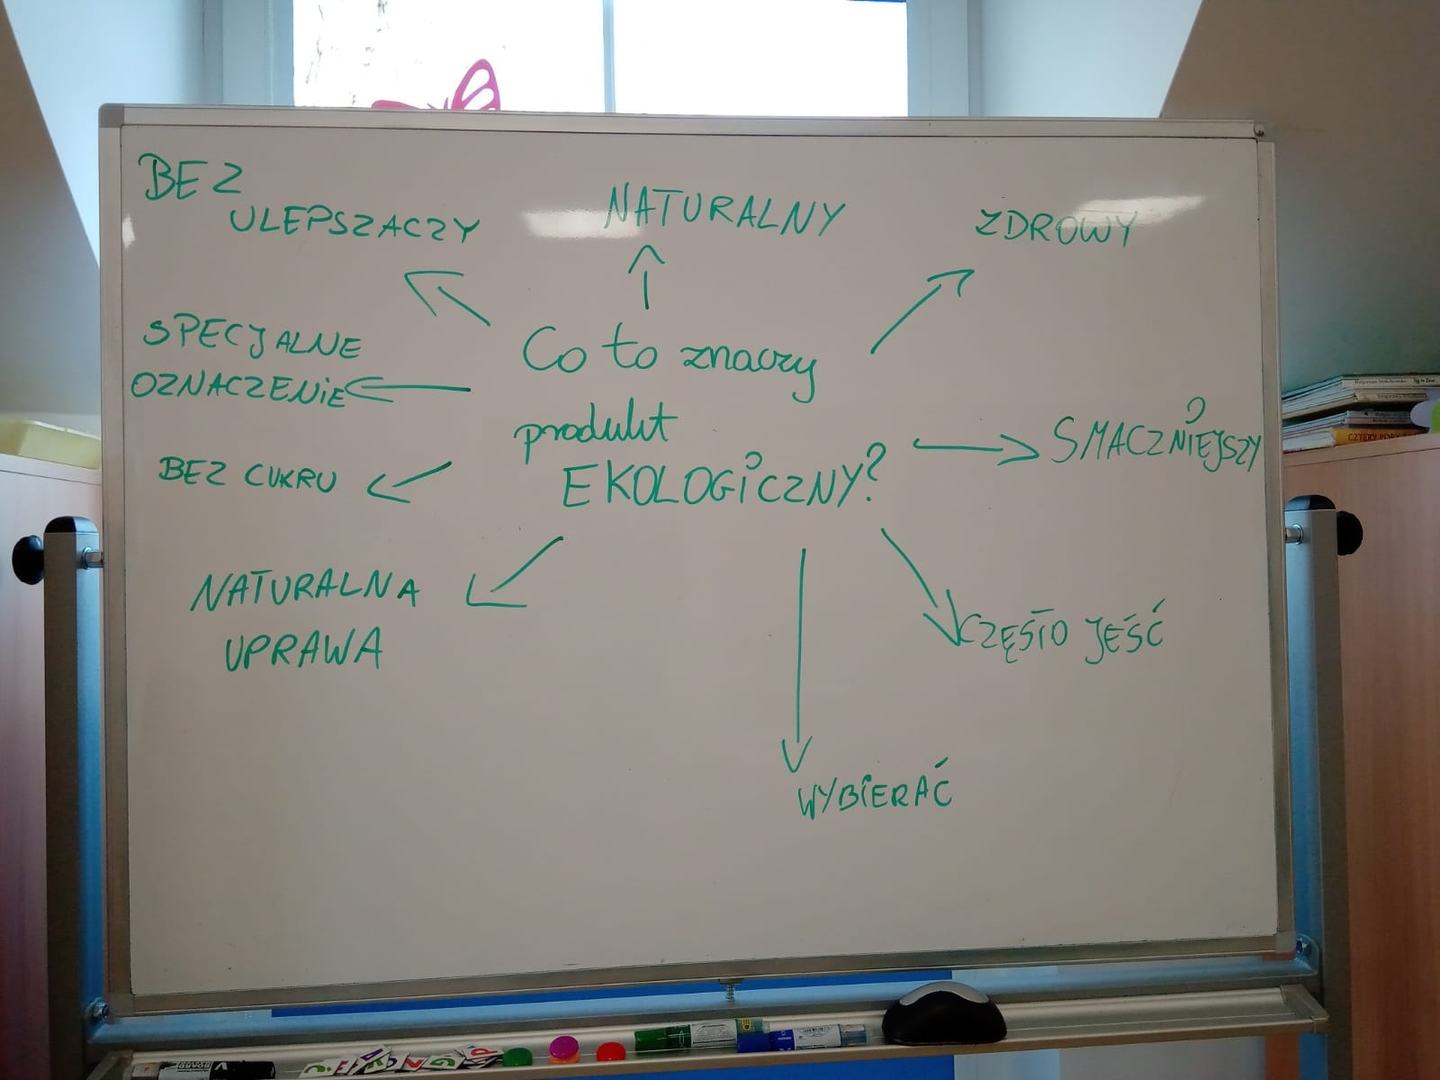 BEZ
ULEPSZACZY
NATURALNY
ZDROWY
SPECJALNE
OZNACZENIE
Co to znaczy
produkt
EKOLOGICZNY?
SMACZNIEJSZY
BEZ CUKRU
NATURALNA
UPRAWA
CZĘSTO JEŚĆ
WYBIERAĆ